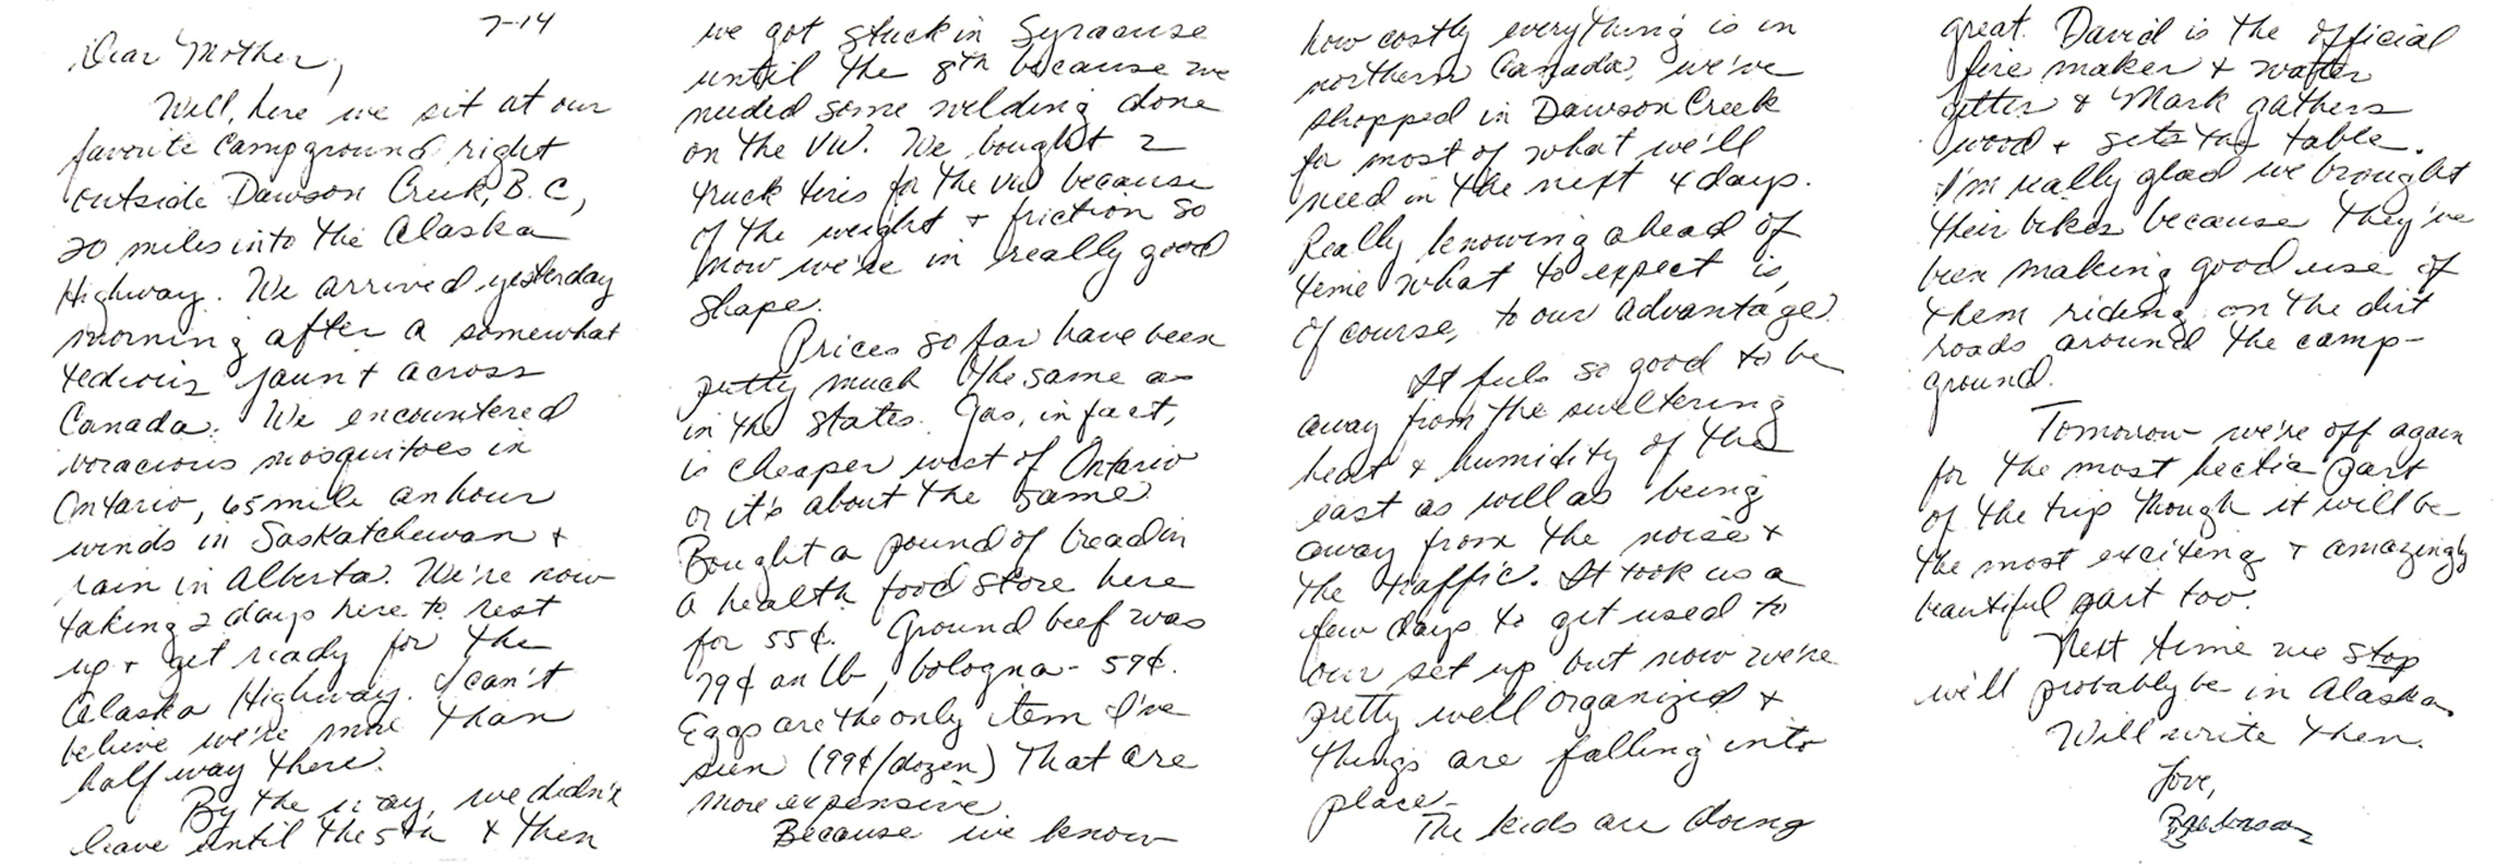 7-14
Dear Mother,
Well, here we sit at our
favorite Campground right
outside Dawson Creek, B.C,
20 miles into the Alaska
Highway. We arrived yesterday
morning after a somewhat
tedious jaunt across
Canada. We encountered
voracious mosquitoes in
Ontario, 65 mile an hour
winds in Saskatchewan +
rain in Alberta. We're now
taking 2 days here to rest
up + get ready for the
Alaska Highway. I can't
believe we're more than
half way there.
By the way, we didn't
leave until the 5th & then
we got stuck in Syracuse
until the 8th because we
needed some welding done
on the VW. We bought 2
truck tires for the VW because
of the weight + friction so
now we're in really good
shape.
Prices so far have been
pretty much the same as
in the states. Gas, in fact,
is cheaper west of Ontario
or it's about the same.
Bought a pound of bread in
a health food store here
for 55¢. Ground beef was
79¢ an lb, bologna - 59¢.
Eggs are the only item I've
seen (99¢/dozen) That are
more expensive.
Because we know
how costly everything is in
northern Canada, we've
shopped in Dawson Creek
for most of what we'll
need in the next 4 days.
Really knowing ahead of
time what to expect is,
of course, to our advantage.
It feels so good to be
away from the sweltering
heat + humidity of the
east as well as being
away from the noise +
the traffic. It took us a
few days to get used to
our set up but now we're
pretty well organized +
things are falling into
place -
The kids are doing
great. David is the official
fire maker + water
getter & Mark gathers
wood + sets the table.
I'm really glad we brought
their bikes because they've
been making good use of
them riding on the dirt
roads around the camp-
ground.
Tomorrow we're off again
for the most hectic part
of the trip though it will be
the most exciting + amazingly
beautiful part too.
Next time we stop
we'll probably be in Alaska.
Will write then.
Love,